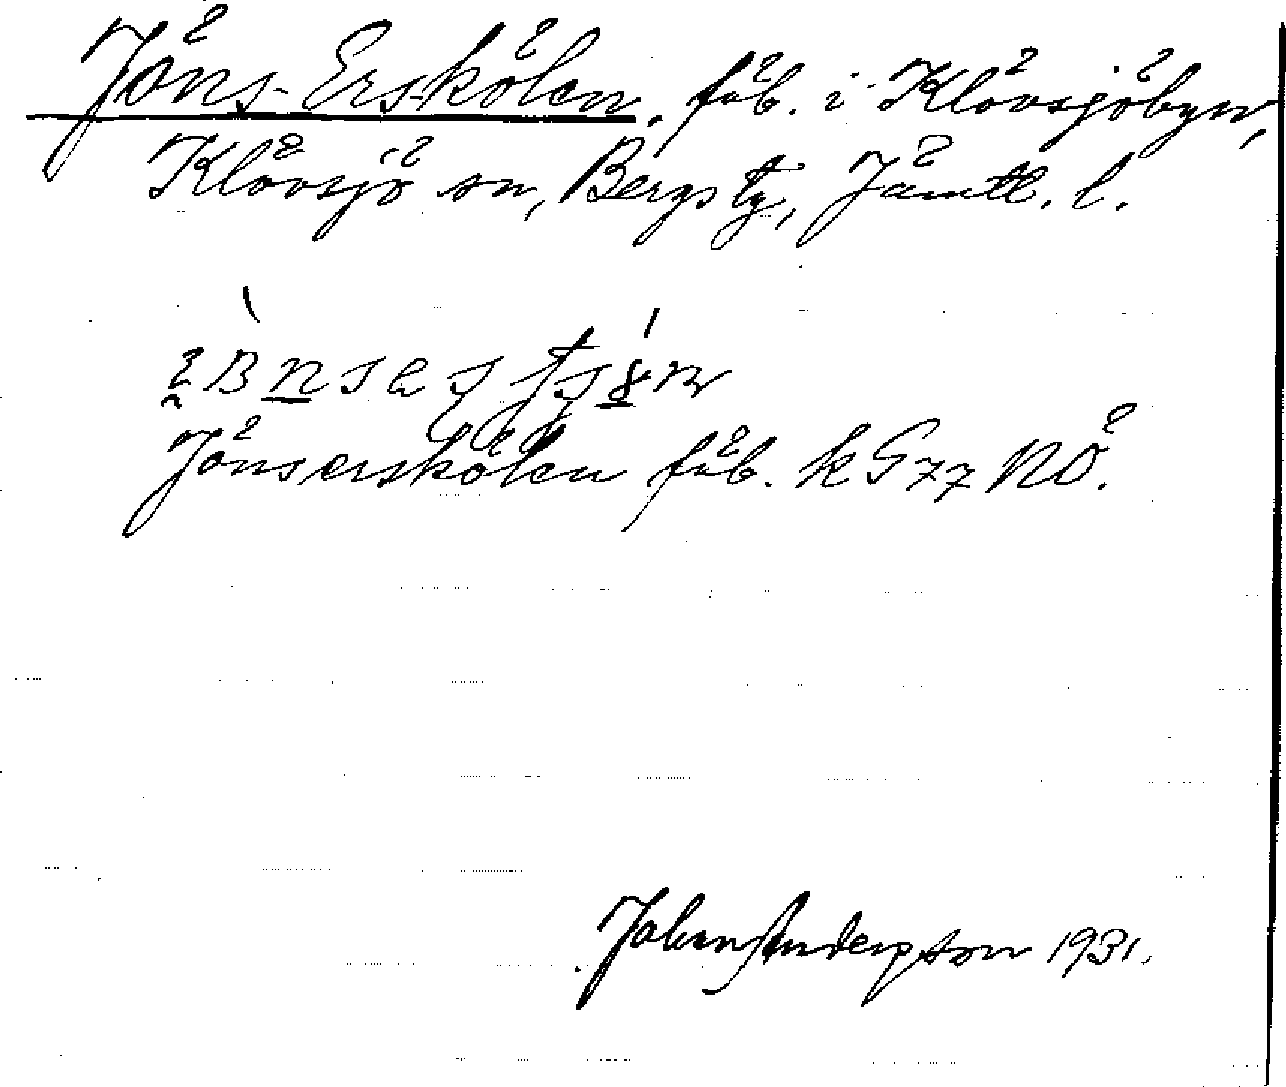 Jöns-Erskölen, fäb. i Klövsjöbyn,
Klövsjö sn, Bergs tg, Jämtl. l.
Jönserskölen fäb. k G77 NÖ.
Johan Anderson 1931.